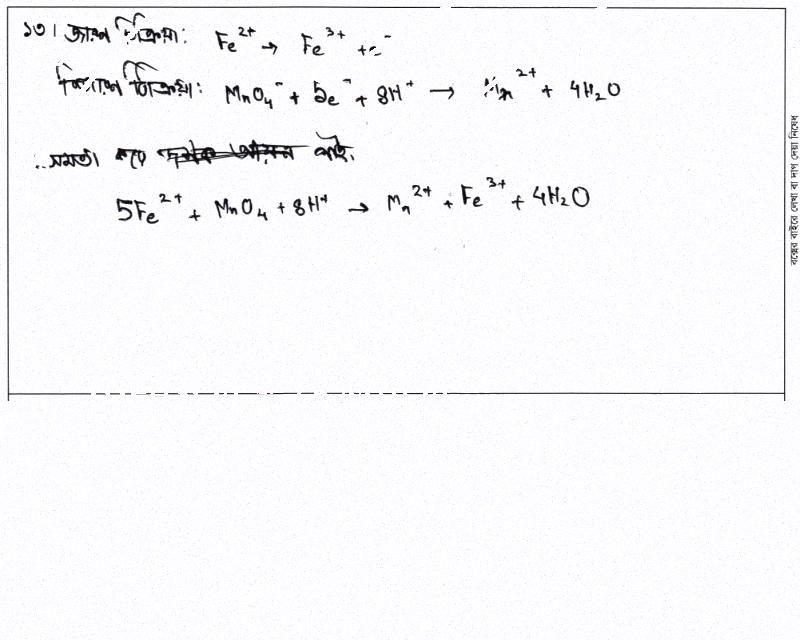 ১৩। জারণ বিক্রিয়া: Fe²⁺ → Fe³⁺ + e⁻
বিজারণ বিক্রিয়া: MnO₄⁻ + 5e⁻ + 8H⁺ → Mn²⁺ + 4H₂O
∴ সমতা করে পাই,
5Fe²⁺ + MnO₄ + 8H⁺ → Mn²⁺ + Fe³⁺ + 4H₂O
বক্সের বাইরে লেখা বা দাগ দেয়া নিষেধ